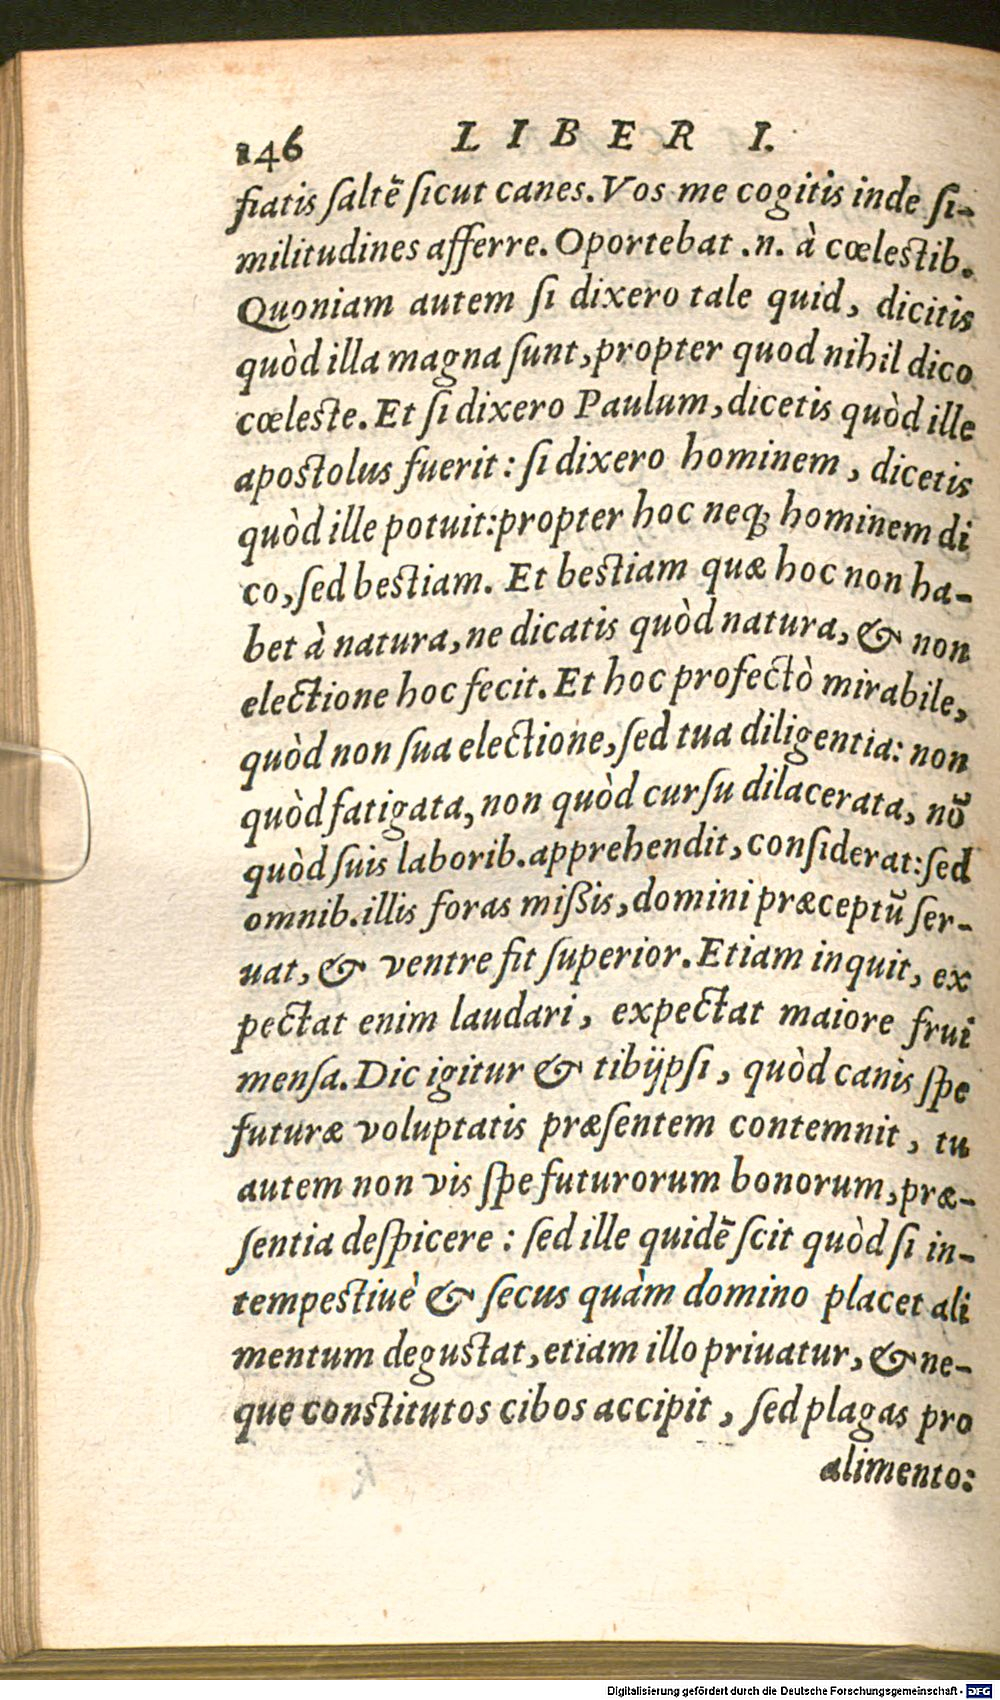 146 LIBER I.
fiatis saltē sicut canes. Vos me cogitis inde si-
militudines afferre. Oportebat .n. à cœlestib.
Quoniam autem si dixero tale quid, dicitis
quòd illa magna sunt, propter quod nihil dico
cœleste. Et si dixero Paulum, dicetis quòd ille
apostolus fuerit: si dixero hominem, dicetis
quòd ille potuit: propter hoc neq; hominem di
co, sed bestiam. Et bestiam quæ hoc non ha-
bet à natura, ne dicatis quòd natura, & non
electione hoc fecit. Et hoc profectò mirabile,
quòd non sua electione, sed tua diligentia: non
quòd fatigata, non quòd cursu dilacerata, nō
quòd suis laborib. apprehendit, considerat: sed
omnib. illis foras mißis, domini præceptū ser-
uat, & ventre fit superior. Etiam inquit, ex
pectat enim laudari, expectat maiore frui
mensa. Dic igitur & tibijpsi, quòd canis spe
futuræ voluptatis præsentem contemnit, tu
autem non vis spe futurorum bonorum, præ-
sentia despicere: sed ille quidē scit quòd si in-
tempestiuè & secus quàm domino placet ali
mentum degustat, etiam illo priuatur, & ne-
que constitutos cibos accipit, sed plagas pro
alimento:
Digitalisierung gefördert durch die Deutsche Forschungsgemeinschaft - DFG